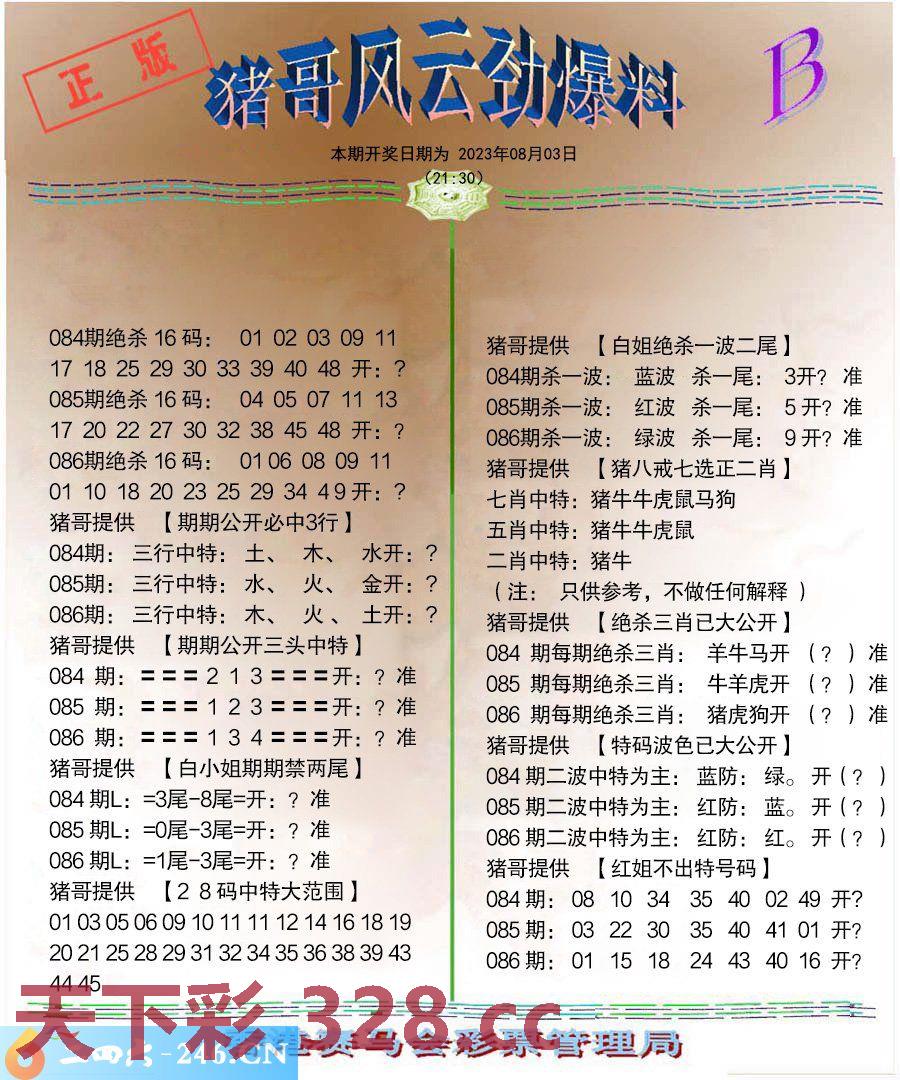 正版
猪哥风云劲爆料
B
本期开奖日期为 2023年08月03日
(21:30)
084期绝杀 16 码： 01 02 03 09 11
17 18 25 29 30 33 39 40 48 开：？
085期绝杀 16 码： 04 05 07 11 13
17 20 22 27 30 32 38 45 48 开：？
086期绝杀 16 码： 01 06 08 09 11
01 10 18 20 23 25 29 34 4 9 开：？
猪哥提供 【期期公开必中3行】
084期： 三行中特： 土、 木、 水开：？
085期： 三行中特： 水、 火、 金开：？
086期： 三行中特： 木、 火 、 土开：？
猪哥提供 【期期公开三头中特】
084 期： = = = 2 1 3 = = = 开：？准
085 期： = = = 1 2 3 = = = 开：？准
086 期： = = = 1 3 4 = = = 开：？准
猪哥提供 【白小姐期期禁两尾】
084 期L：=3尾-8尾=开：？准
085 期L：=0尾-3尾=开：？准
086 期L：=1尾-3尾=开：？准
猪哥提供 【2 8 码中特大范围】
01 03 05 06 09 10 11 11 12 14 16 18 19
20 21 25 28 29 31 32 34 35 36 38 39 43
44 45
猪哥提供 【白姐绝杀一波二尾】
084期杀一波： 蓝波 杀一尾： 3开？准
085期杀一波： 红波 杀一尾： 5 开？准
086期杀一波： 绿波 杀一尾： 9 开？准
猪哥提供 【猪八戒七选正二肖】
七肖中特：猪牛牛虎鼠马狗
五肖中特：猪牛牛虎鼠
二肖中特：猪牛
（注： 只供参考，不做任何解释 ）
猪哥提供 【绝杀三肖已大公开】
084 期每期绝杀三肖： 羊牛马开 （？）准
085 期每期绝杀三肖： 牛羊虎开 （？）准
086 期每期绝杀三肖： 猪虎狗开 （？）准
猪哥提供 【特码波色已大公开】
084 期二波中特为主：蓝防：绿。开（？）
085 期二波中特为主：红防：蓝。开（？）
086 期二波中特为主：红防：红。开（？）
猪哥提供 【红姐不出特号码】
084 期： 08 10 34 35 40 02 49 开?
085 期： 03 22 30 35 40 41 01 开?
086 期： 01 15 18 24 43 40 16 开?
天下彩 328.cc
-246.CN
赛马会彩票管理局